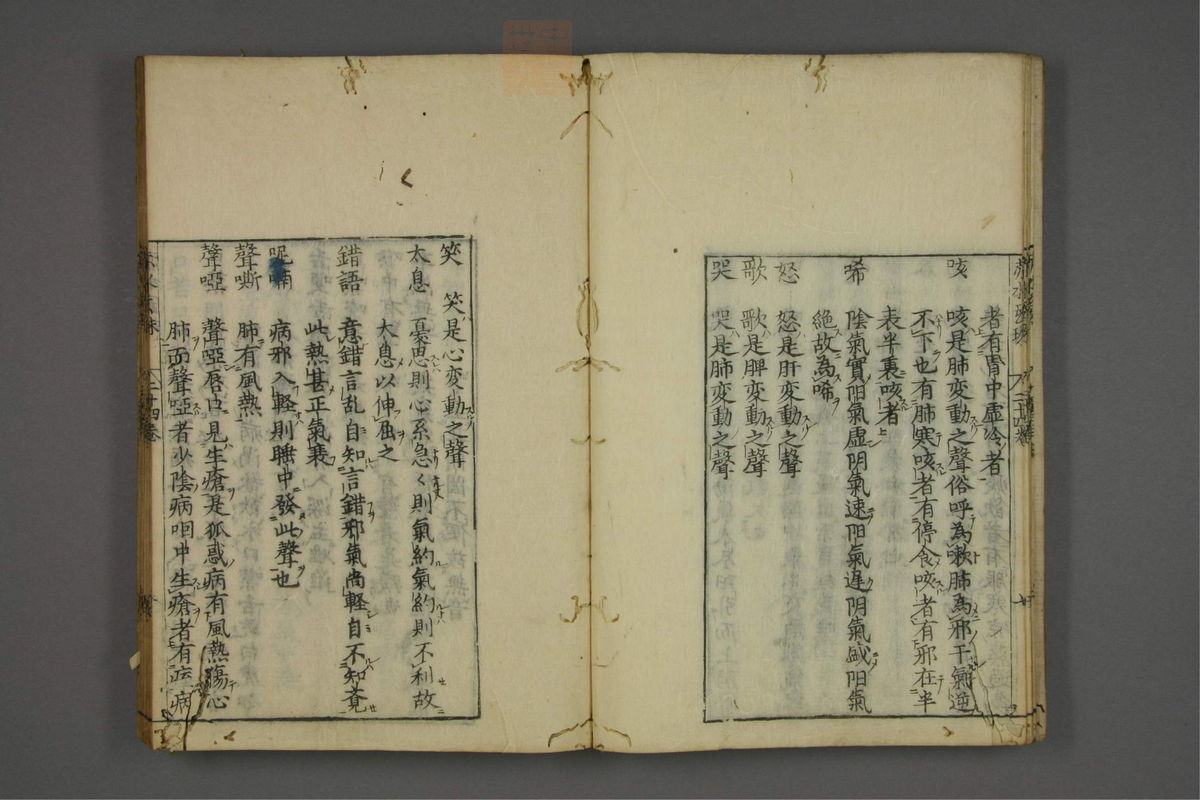 者有胃中虛冷者
咳　咳是肺変動之聲俗呼為嗽肺為邪干氣逆
不下也有肺寒咳者有停食咳者有邪在半
表半裏咳者
唏　陰氣實阳氣虛阴氣速阳氣遲阴氣盛阳氣
絶故為唏
怒　怒是肝変動之聲
歌　歌是脾変動之聲
哭　哭是肺変動之聲
笑　笑是心変動之聲
太息　憂思則心系急々則氣約氣約則不利故
太息以伸
錯語　意錯言乱自知言錯邪氣尚軽自不知覚
此熱甚正氣衰
呢喃　病邪入軽則中發此聲也
聲嘶　肺有風熱
聲啞　聲啞唇口見生瘡是狐惑病有風熱傷心
肺而聲啞者少陰病咽中生瘡者有痓病